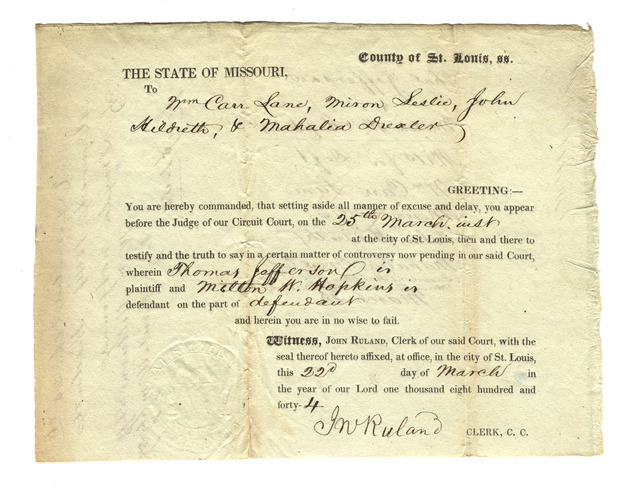 County of St. Louis, ss.
THE STATE OF MISSOURI,
To
Wm Carr Lane, Miron Leslie, John
Hildreth, & Mahalia Drexler
GREETING:—
You are hereby commanded, that setting aside all manner of excuse and delay, you appear
before the Judge of our Circuit Court, on the 25th March inst
at the city of St. Louis, then and there to
testify and the truth to say in a certain matter of controversy now pending in our said Court,
wherein Thomas Jefferson is
plaintiff and Milton W. Hopkins is
defendant on the part of defendant
and herein you are in no wise to fail.
Witness, JOHN RULAND, Clerk of our said Court, with the
seal thereof hereto affixed, at office, in the city of St. Louis,
this 22d day of March in
the year of our Lord one thousand eight hundred and
forty-4
J W Ruland CLERK, C. C.